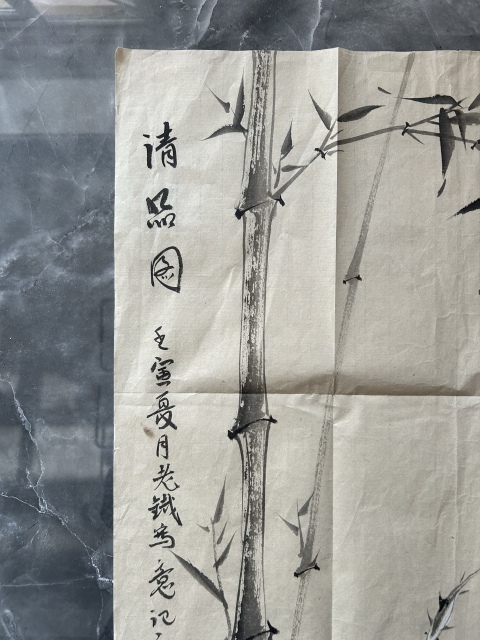 请品图
壬寅夏月老铁写意记